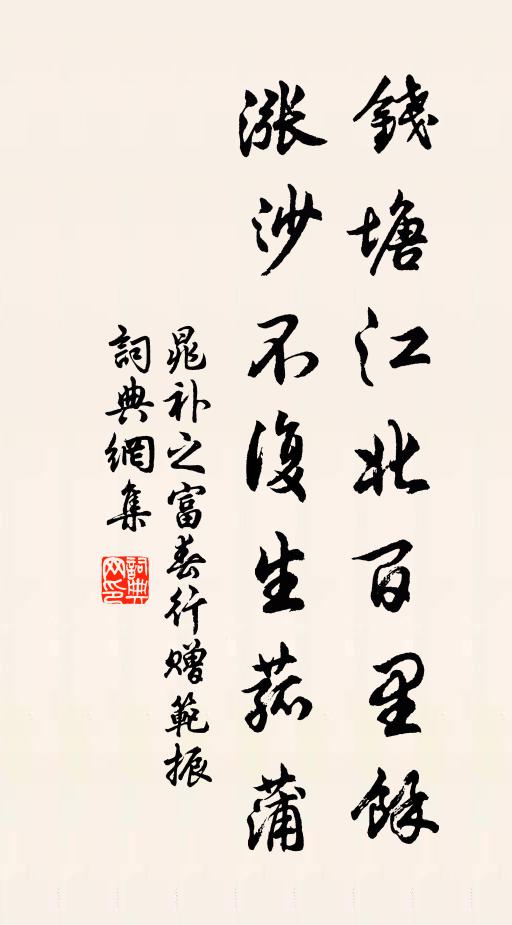 錢塘江北百里餘
漲沙不復生菰蒲
晁补之富春行贈範振
詞典網集
詞典网印